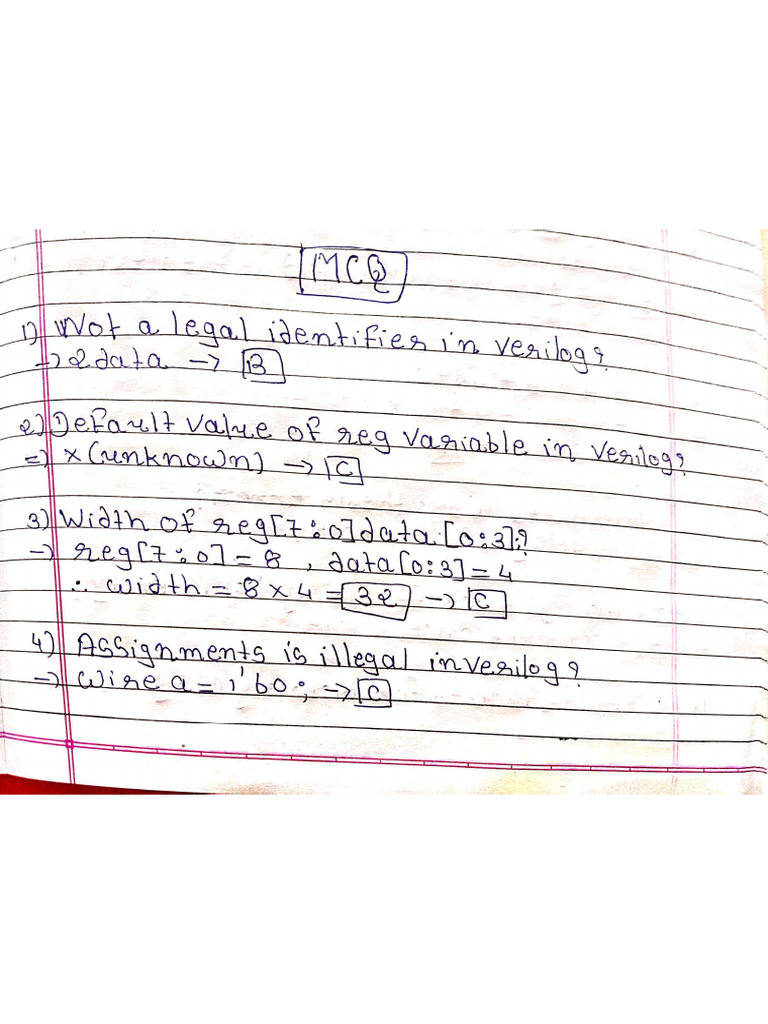 MCQ
1) Not a legal identifier in verilog?
→ 2data → B
2) Default value of reg variable in verilog?
⇒ x(unknown) → C
3) Width of reg[7:0]data[0:3];?
→ reg[7:0] = 8 , data[0:3] = 4
∴ width = 8 × 4 = 32 → C
4) Assignments is illegal in verilog?
→ wire a = 1'b0; → C